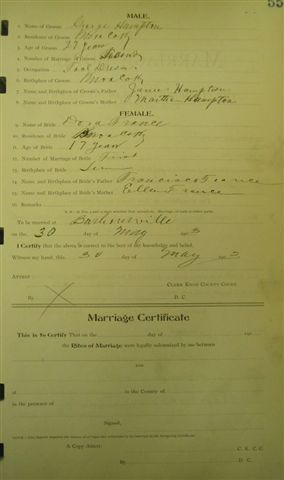 55
MALE.
1. Name of Groom George Hampton
2. Residence of Groom Knox Co Ky
3. Age of Groom 27 years
4. Number of Marriage of Groom Second
5. Occupation Tool Dresser
6. Birthplace of Groom Knox Co Ky
7. Name and Birthplace of Groom's Father James Hampton
8. Name and Birthplace of Groom's Mother Martha Hampton
FEMALE.
9. Name of Bride Dora France
10. Residence of Bride Knox Co Ky
11. Age of Bride 17 years
12. Number of Marriage of Bride First
13. Birthplace of Bride
14. Name and Birthplace of Bride's Father Francisco France
15. Name and Birthplace of Bride's Mother Ellen France
16. Remarks
To be married at Barbourville
on the 30 day of May 1903
I Certify that the above is correct to the best of my knowledge and belief.
Witness my hand, this 30 day of May 1903
Attest:
Clerk Knox County Court
By X D. C.
Marriage Certificate
This is to Certify That on the day of 190
the Rites of Marriage were legally solemnized by me between
AND
at in the County of
in the presence of
Signed,
A Copy Attest: C. K. C. C.
By D. C.